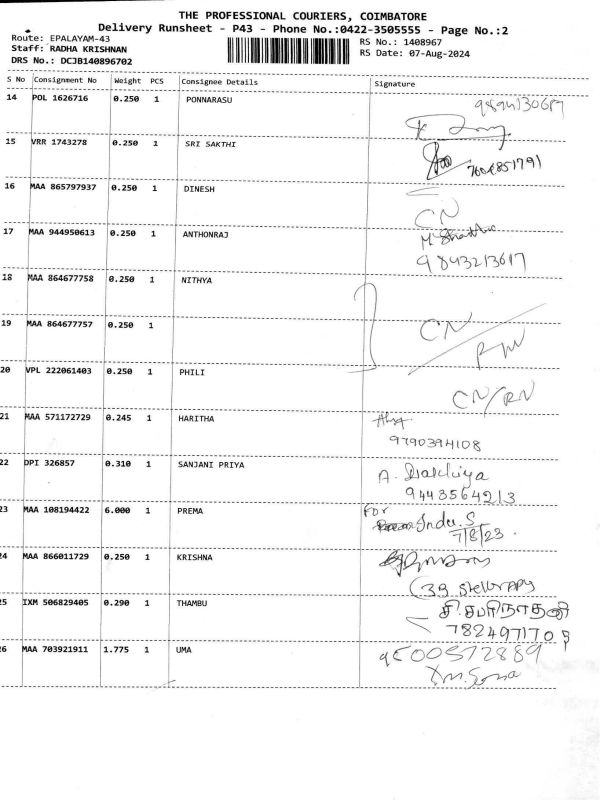 THE PROFESSIONAL COURIERS, COIMBATORE
Delivery Runsheet - P43 - Phone No.:0422-3505555 - Page No.:2
Route: EPALAYAM-43
Staff: RADHA KRISHNAN
DRS No.: DCJB140896702
RS No.: 1408967
RS Date: 07-Aug-2024
S No Consignment No Weight PCS Consignee Details Signature
14 POL 1626716 0.250 1 PONNARASU
9894130617
15 VRR 1743278 0.250 1 SRI SAKTHI
7604851791
16 MAA 865797937 0.250 1 DINESH
CN
17 MAA 944950613 0.250 1 ANTHONRAJ
9843213617
18 MAA 864677758 0.250 1 NITHYA
19 MAA 864677757 0.250 1
CN
20 VPL 222061403 0.250 1 PHILI
CN/RN
21 MAA 571172729 0.245 1 HARITHA
9790394108
22 DPI 326857 0.310 1 SANJANI PRIYA
A.
9443564213
23 MAA 108194422 6.000 1 PREMA
For
Indu.S
7/8/23.
24 MAA 866011729 0.250 1 KRISHNA
25 IXM 506829405 0.290 1 THAMBU
சி.சபரிநாதன்
7824971709
26 MAA 703921911 1.775 1 UMA
9500572889